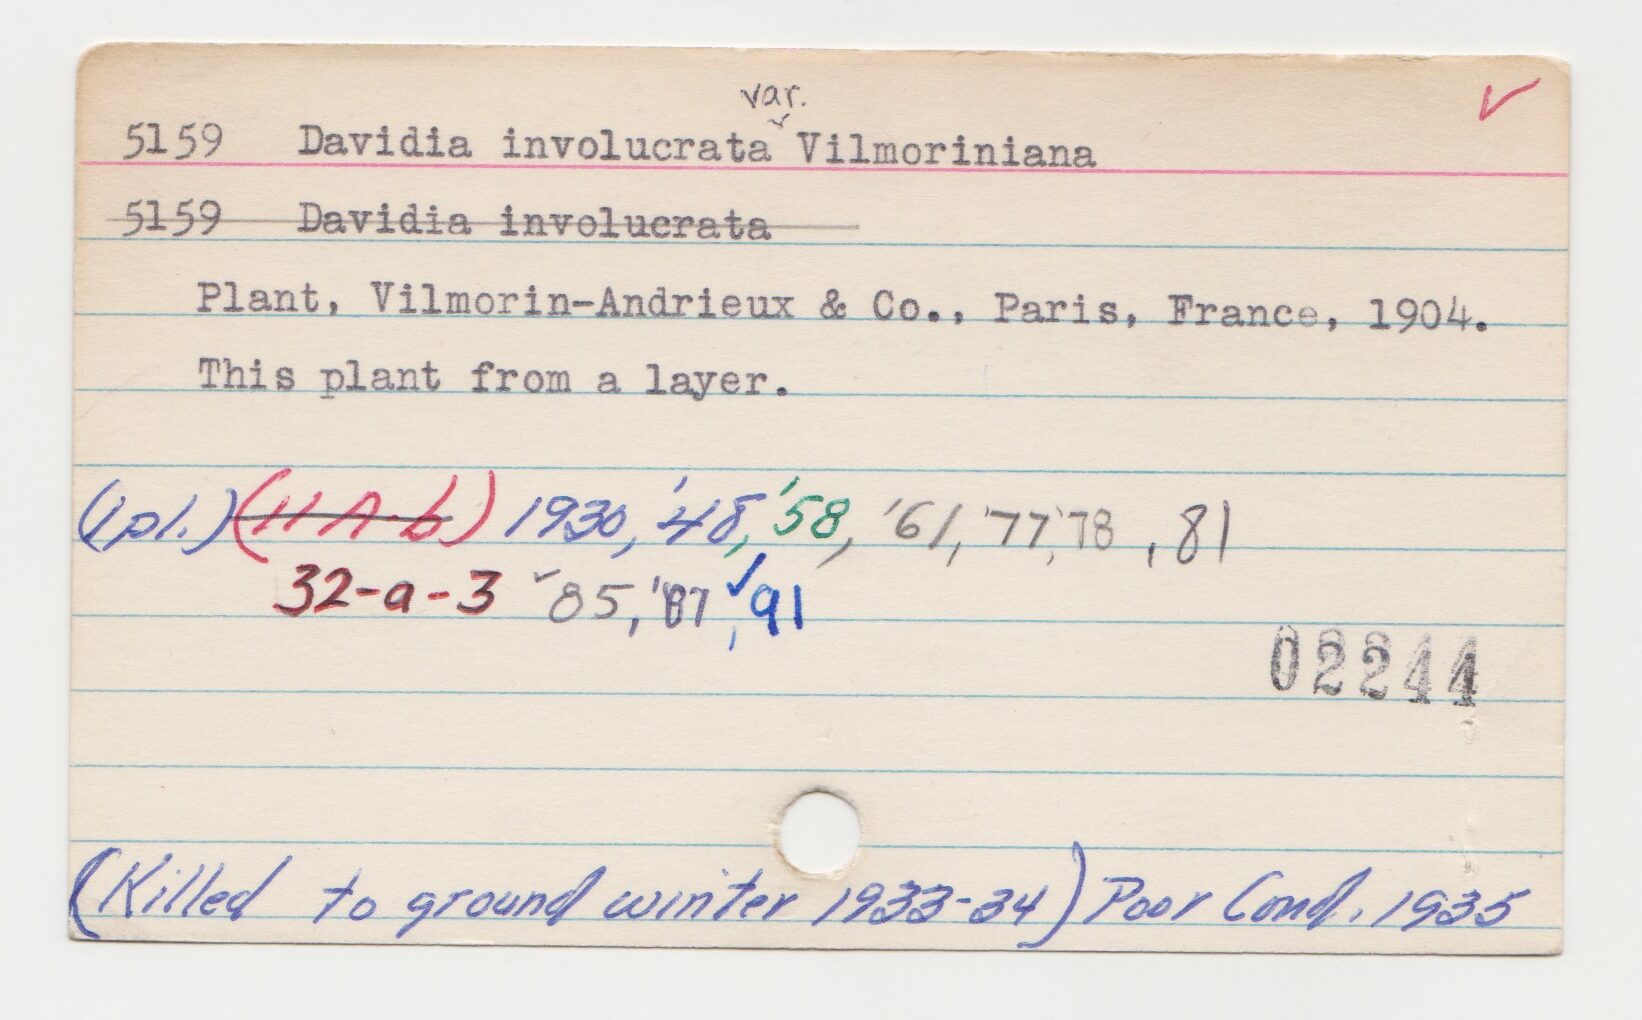 var.
5159 Davidia involucrata Vilmoriniana
5159 Davidia involucrata
Plant, Vilmorin-Andrieux & Co., Paris, France, 1904.
This plant from a layer.
(1 pl.) (11 A-b) 1930, '48, '58, '61, '77, '78, 81
32-a-3 85, '87, 91
02244
(Killed to ground winter 1933-34) Poor Cond. 1935